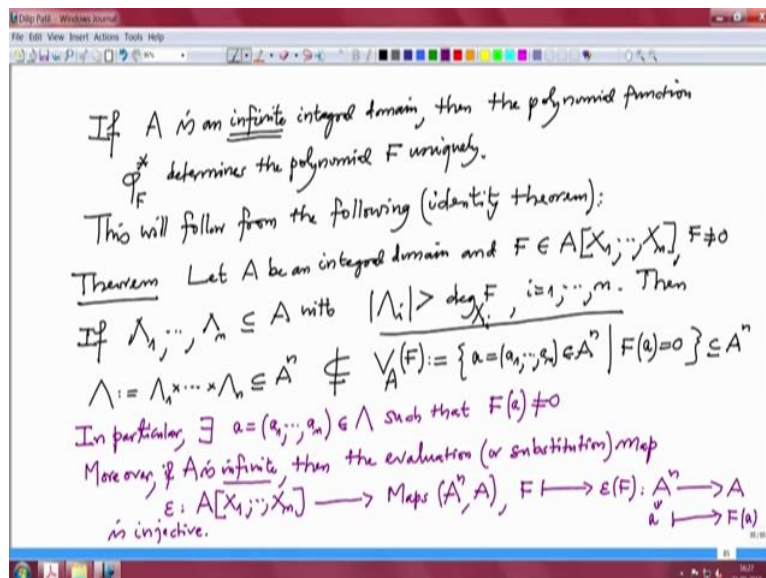 Dilip Patil - Windows Journal
File Edit View Insert Actions Tools Help
If A is an infinite integral domain, then the polynomial function
φ*_F determines the polynomial F uniquely.
This will follow from the following (identity theorem):
Theorem Let A be an integral domain and F ∈ A[X₁,…,Xₙ], F≠0
If Λ₁,…,Λₙ ⊆ A with |Λᵢ| > deg_{Xᵢ} F, i=1,…,n. Then
Λ := Λ₁×⋯×Λₙ ⊆ Aⁿ ⊄ V_A(F) := {a=(a₁,…,aₙ)∈Aⁿ | F(a)=0} ⊆ Aⁿ
In particular, ∃ a=(a₁,…,aₙ) ∈ Λ such that F(a)≠0
Moreover, if A is infinite, then the evaluation (or substitution) map
ε: A[X₁,…,Xₙ] ⟶ Maps(Aⁿ, A), F ⟼ ε(F): Aⁿ ⟶ A
is injective. a ⟼ F(a)
16:27